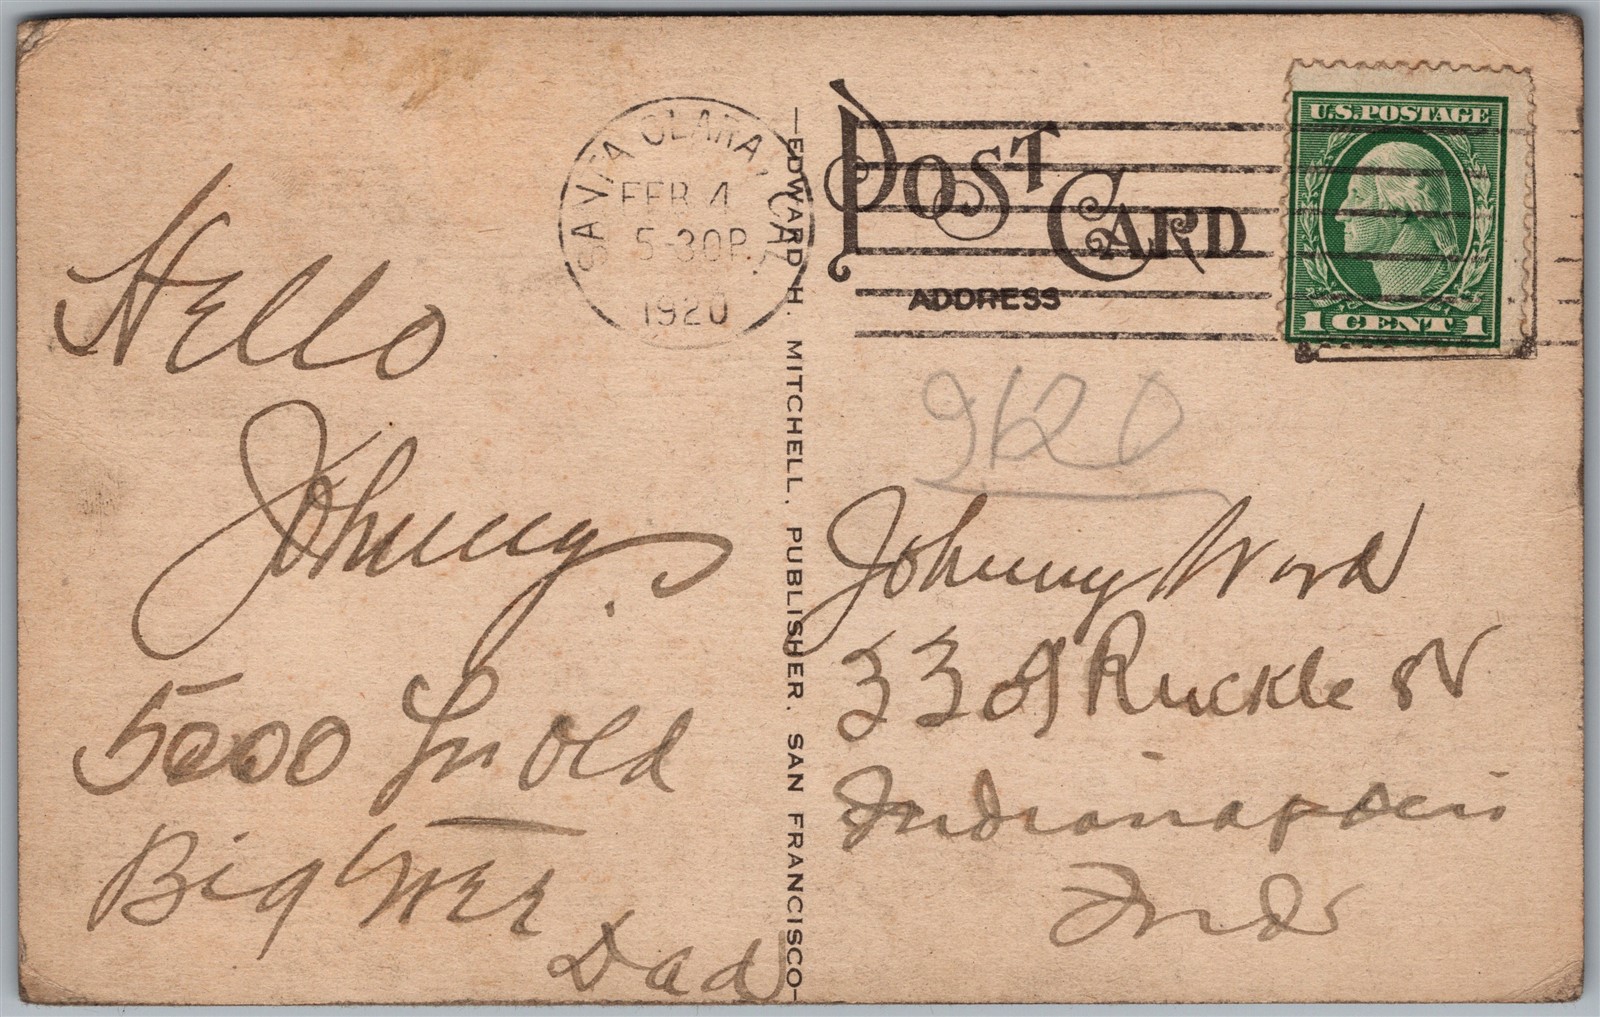 SANTA CLARA, CAL
FEB 4
5-30P
1920
POST CARD
ADDRESS
U.S.POSTAGE
1 CENT 1
9620
Hello
Johnny.
5000 yr old
Big tree
Dad
EDWARD H. MITCHELL, PUBLISHER, SAN FRANCISCO
Johnny Word
Ruckle St
Indianapolis
Ind